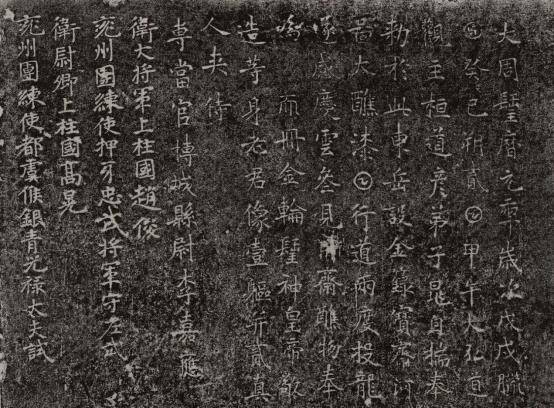 大周𨲢曆元𠡦歲次戊戌臘
𠥱癸巳朔貳𡆠甲午大弘道
觀主桓道彥弟子晁自揣奉
勅於此東岳設金籙寶齋河
圖大醮漆𡆠行道兩度投龍
遂感慶雲叁見用齋醮物奉
為𠀑冊金輪𨲢神皇帝敬
造等身老君像壹軀并貳真
人夾侍
專當官博城縣尉李嘉應
衛大將軍上柱國趙俊
兖州團練使押牙忠武將軍守左武
衛尉卿上柱國高晃
兖州團練使都虞候銀青光祿大夫試